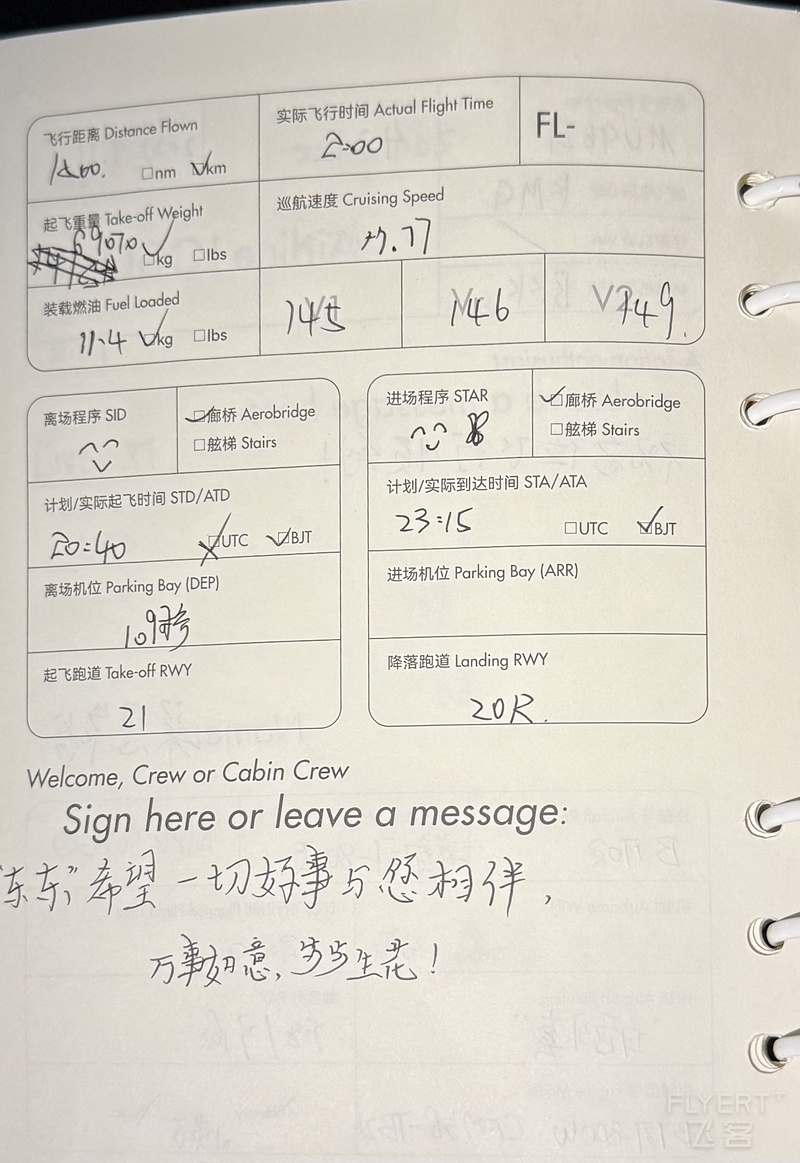 飞行距离 Distance Flown
□nm ☑km
实际飞行时间 Actual Flight Time
2:00
FL-
起飞重量 Take-off Weight
69070 ☑kg □lbs
巡航速度 Cruising Speed
M.77
装载燃油 Fuel Loaded
11.4 ☑kg □lbs
145
146
V2 149.
离场程序 SID
☑廊桥 Aerobridge
□舷梯 Stairs
进场程序 STAR
☑廊桥 Aerobridge
□舷梯 Stairs
计划/实际起飞时间 STD/ATD
20:40 UTC ☑BJT
计划/实际到达时间 STA/ATA
23:15 □UTC ☑BJT
离场机位 Parking Bay (DEP)
109
进场机位 Parking Bay (ARR)
起飞跑道 Take-off RWY
21
降落跑道 Landing RWY
20R.
Welcome, Crew or Cabin Crew
Sign here or leave a message:
"东东"希望一切好事与您相伴，
万事如意，步步生花！
FLYERT+
飞客